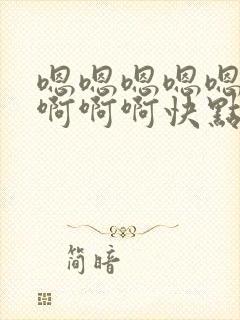 嗯嗯嗯嗯嗯
啊啊啊快點
简暗